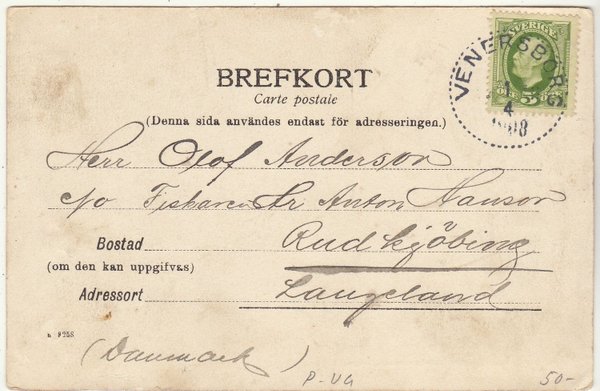 SVERIGE
5 5
VENERSBORG
1
4
1908
BREFKORT
Carte postale
(Denna sida användes endast för adresseringen.)
Herr Olof Anderson
c/o Fiskaren Hr Anton Hanson
Bostad Rudkjöbing
(om den kan uppgifvas)
Adressort Langeland
(Danmark)
P-UG 50-